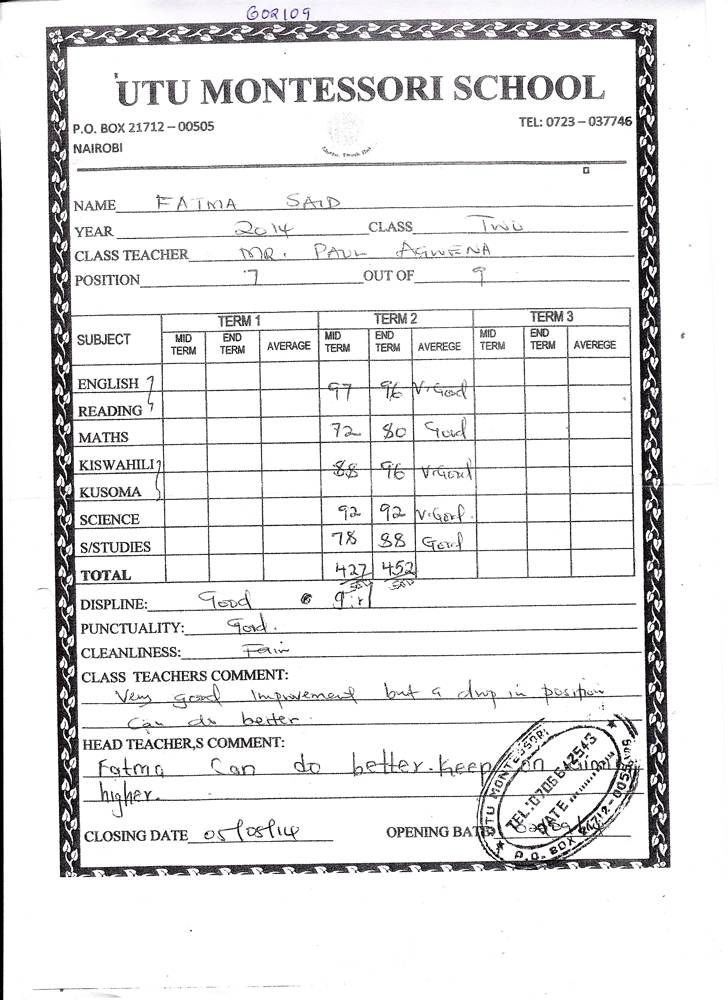 G02109
UTU MONTESSORI SCHOOL
P.O. BOX 21712 – 00505
TEL: 0723 – 037746
NAIROBI
NAME FATMA SAID
YEAR 2014 CLASS TWO
CLASS TEACHER MR. PAUL AGWENA
POSITION 7 OUT OF 9
SUBJECT TERM 1 TERM 2 TERM 3
MID TERM END TERM AVERAGE MID TERM END TERM AVEREGE MID TERM END TERM AVEREGE
ENGLISH 97 96 V.Good
READING
MATHS 72 80 Good
KISWAHILI 88 96 V.Good
KUSOMA
SCIENCE 92 92 V.Good.
S/STUDIES 78 88 Good
TOTAL 427 452
500 500
DISPLINE: Good girl
PUNCTUALITY: Good.
CLEANLINESS: Fair
CLASS TEACHERS COMMENT:
Very good Improvement but a drop in position
Can do better.
HEAD TEACHER,S COMMENT:
Fatma Can do better. Keep on aiming
higher.
CLOSING DATE 05/08/14 OPENING DATE
UTU MONTESSORI
TEL: 0706 642543
DATE
P.O. BOX 21712 - 00505